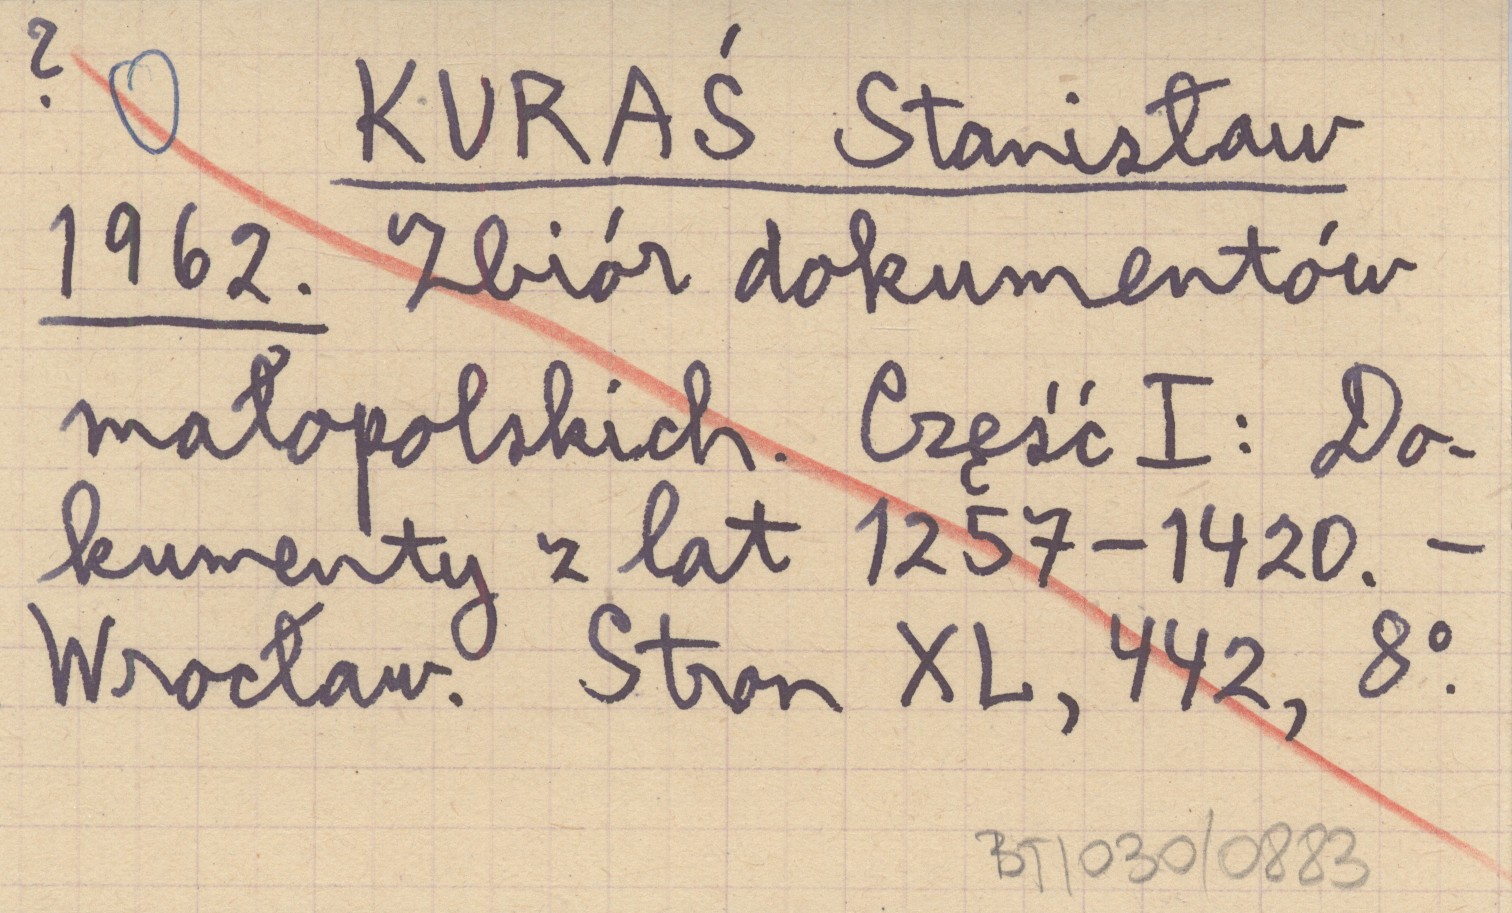 ?
KURAŚ Stanisław
1962. Zbiór dokumentów
małopolskich. Część I: Do-
kumenty z lat 1257-1420. -
Wrocław. Stron XL, 442, 8°.
BT/030/0883